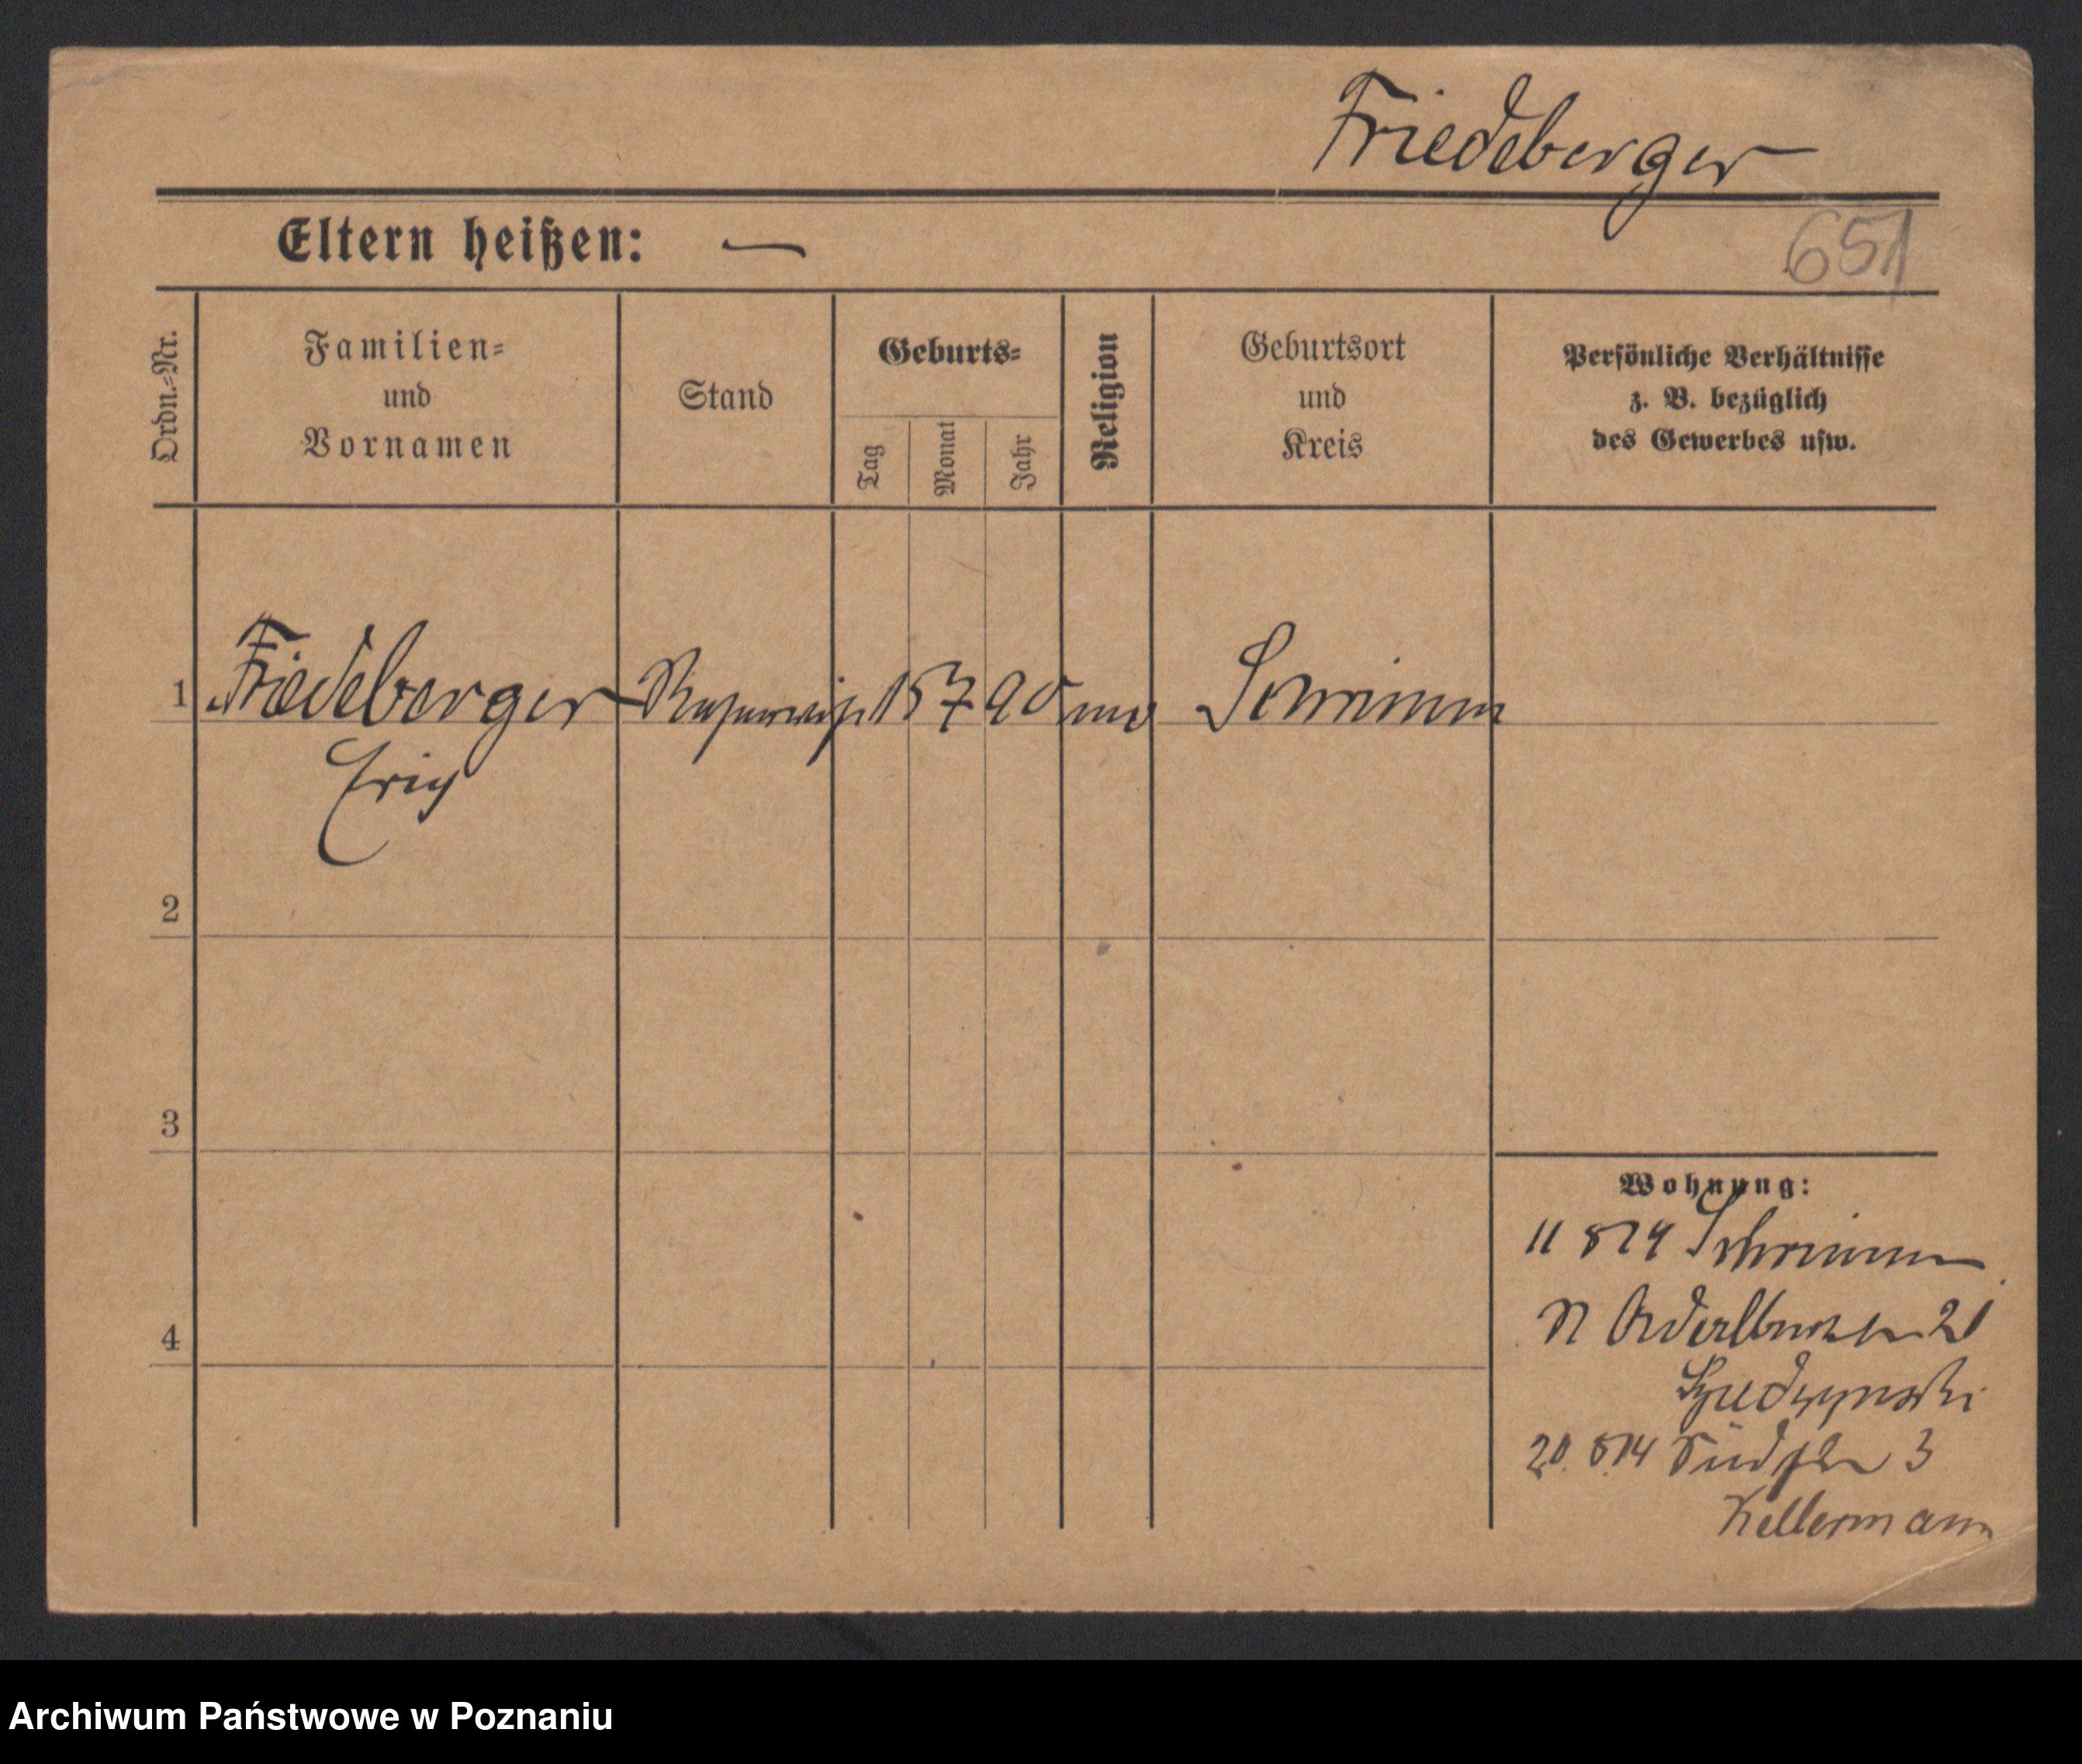 Friedeberger
Eltern heißen: —
651
Ordn.-Nr.
Familien-
und
Vornamen
Stand
Geburts-
Tag
Monat
Jahr
Religion
Geburtsort
und
Kreis
Persönliche Verhältnisse
z. B. bezüglich
des Gewerbes usw.
1 Friedeberger 15 7 90 Schrimm
Erich
2
3
4
Wohnung:
11 8 14 Schrimm
21
20. 8 14 Südstr 3
Kellermann
Archiwum Państwowe w Poznaniu